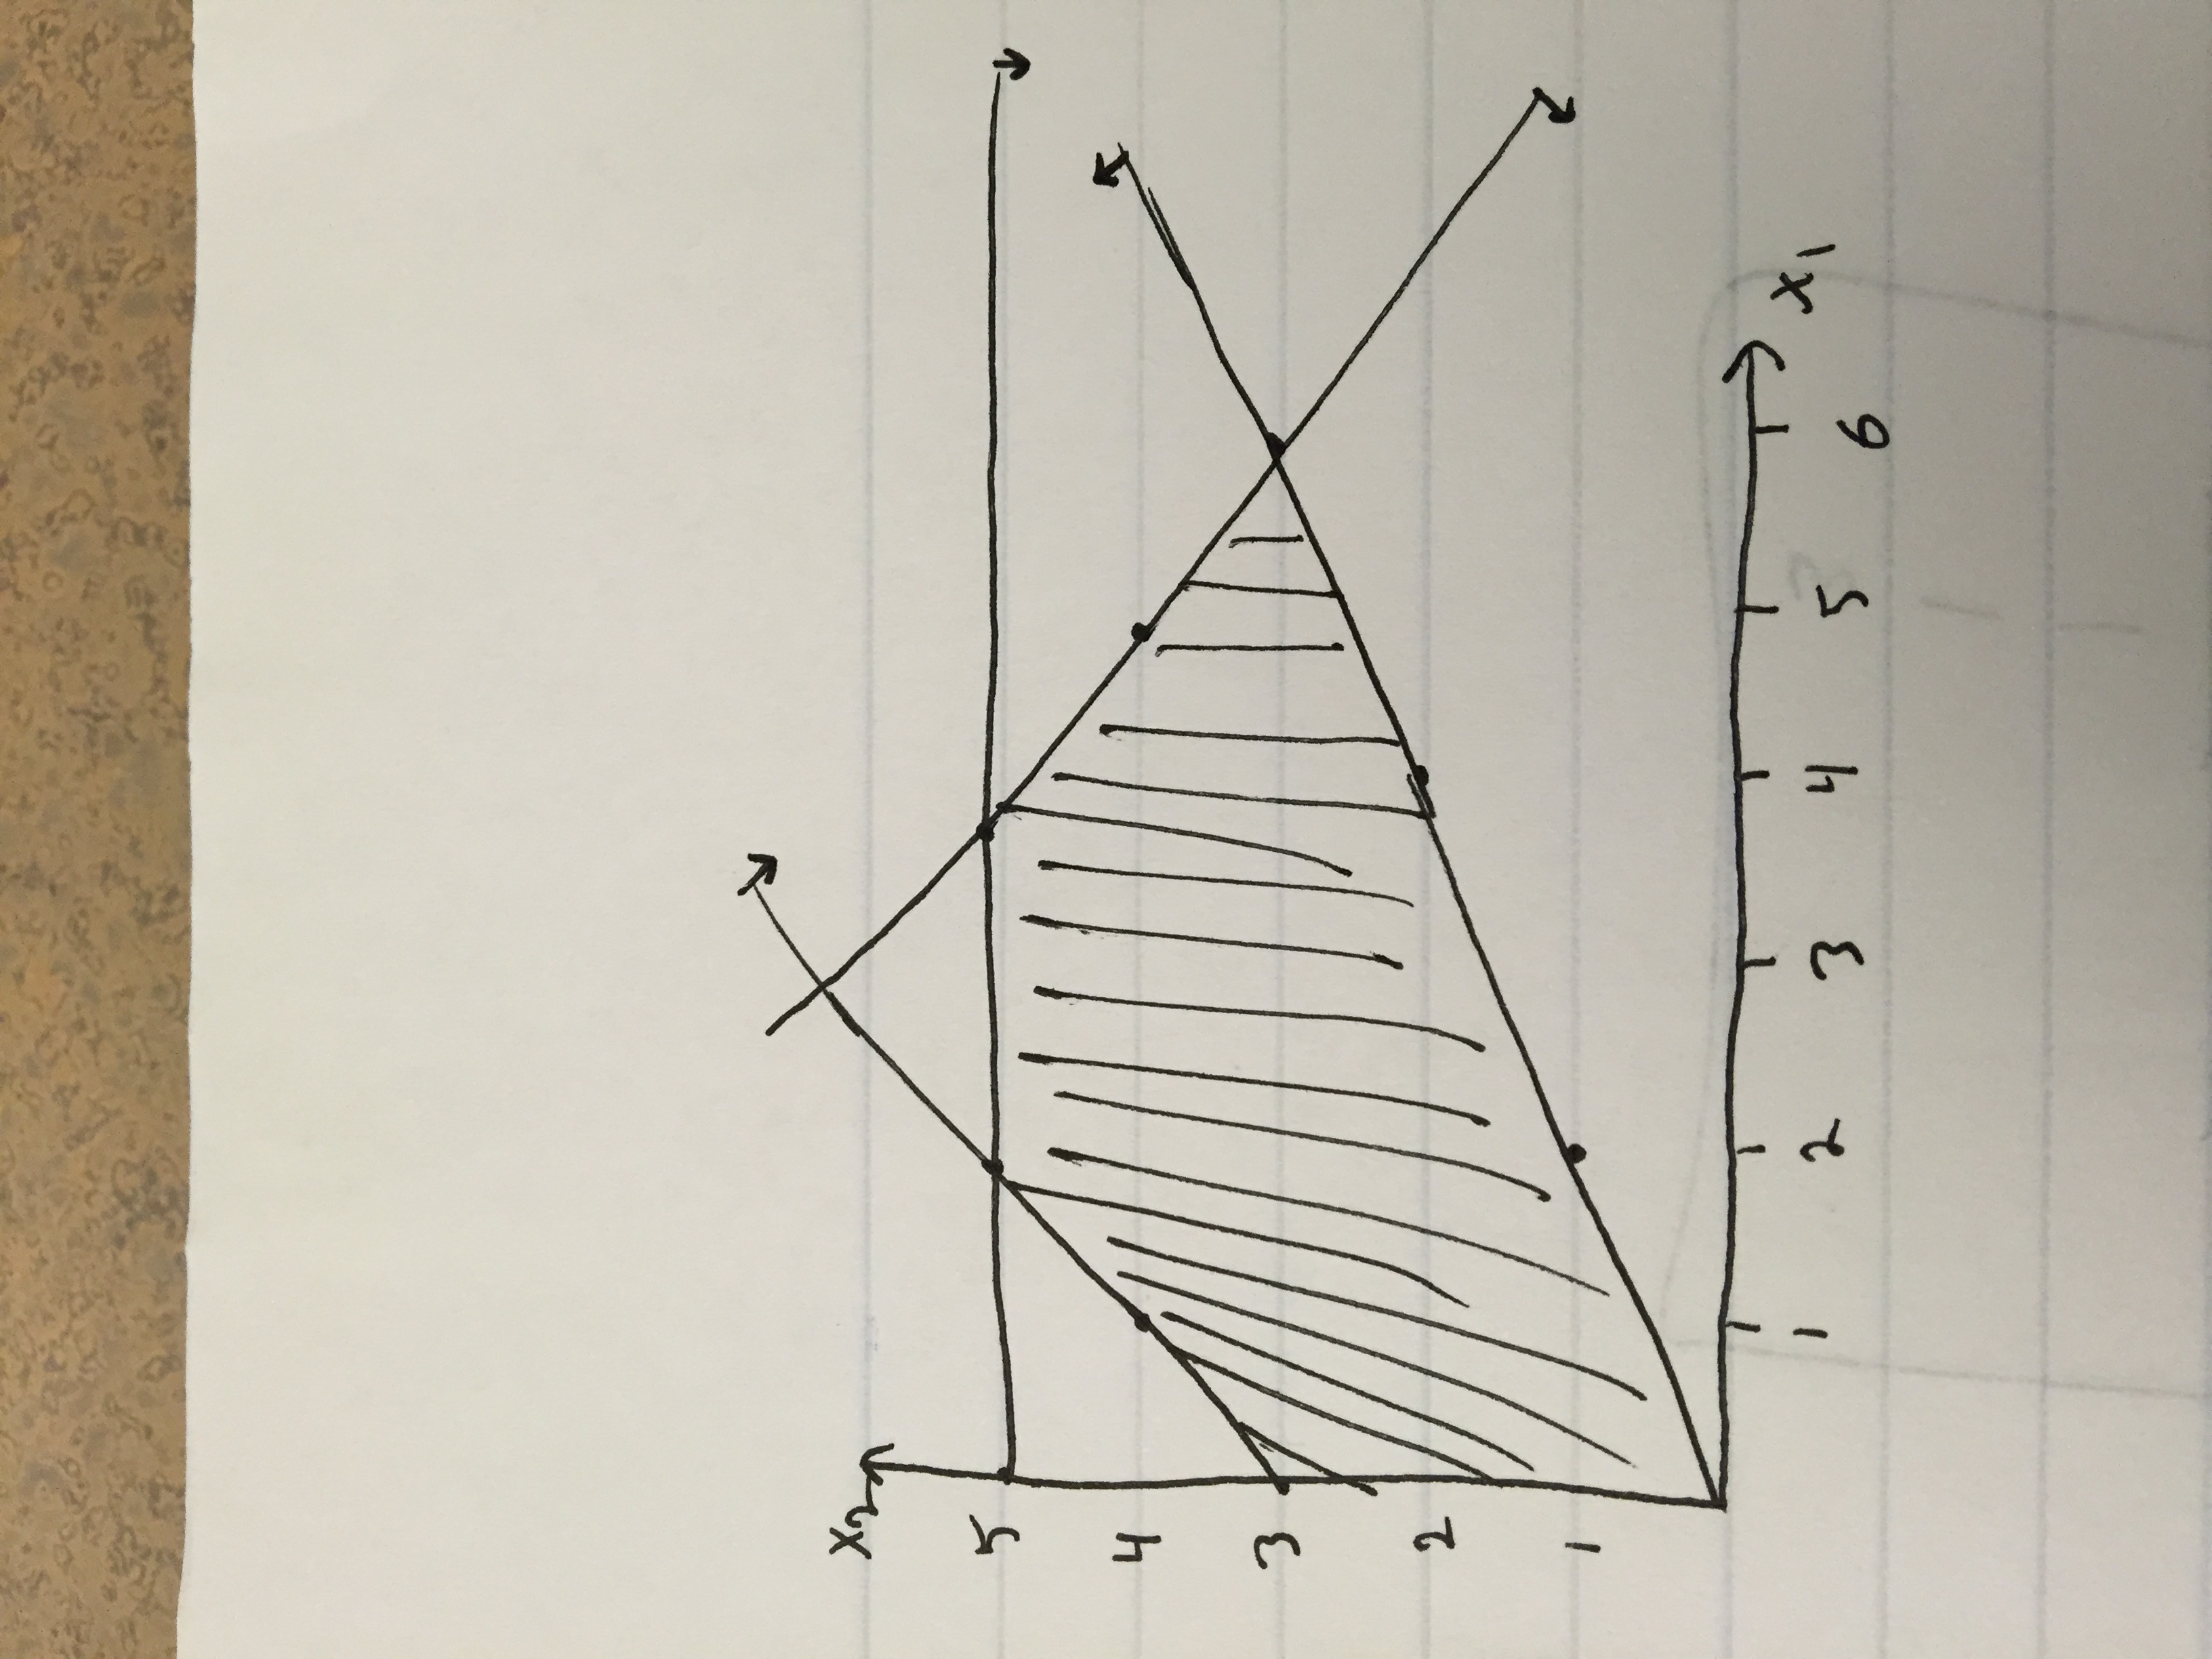 x2
5
4
3
2
1
1 2 3 4 5 6
x1